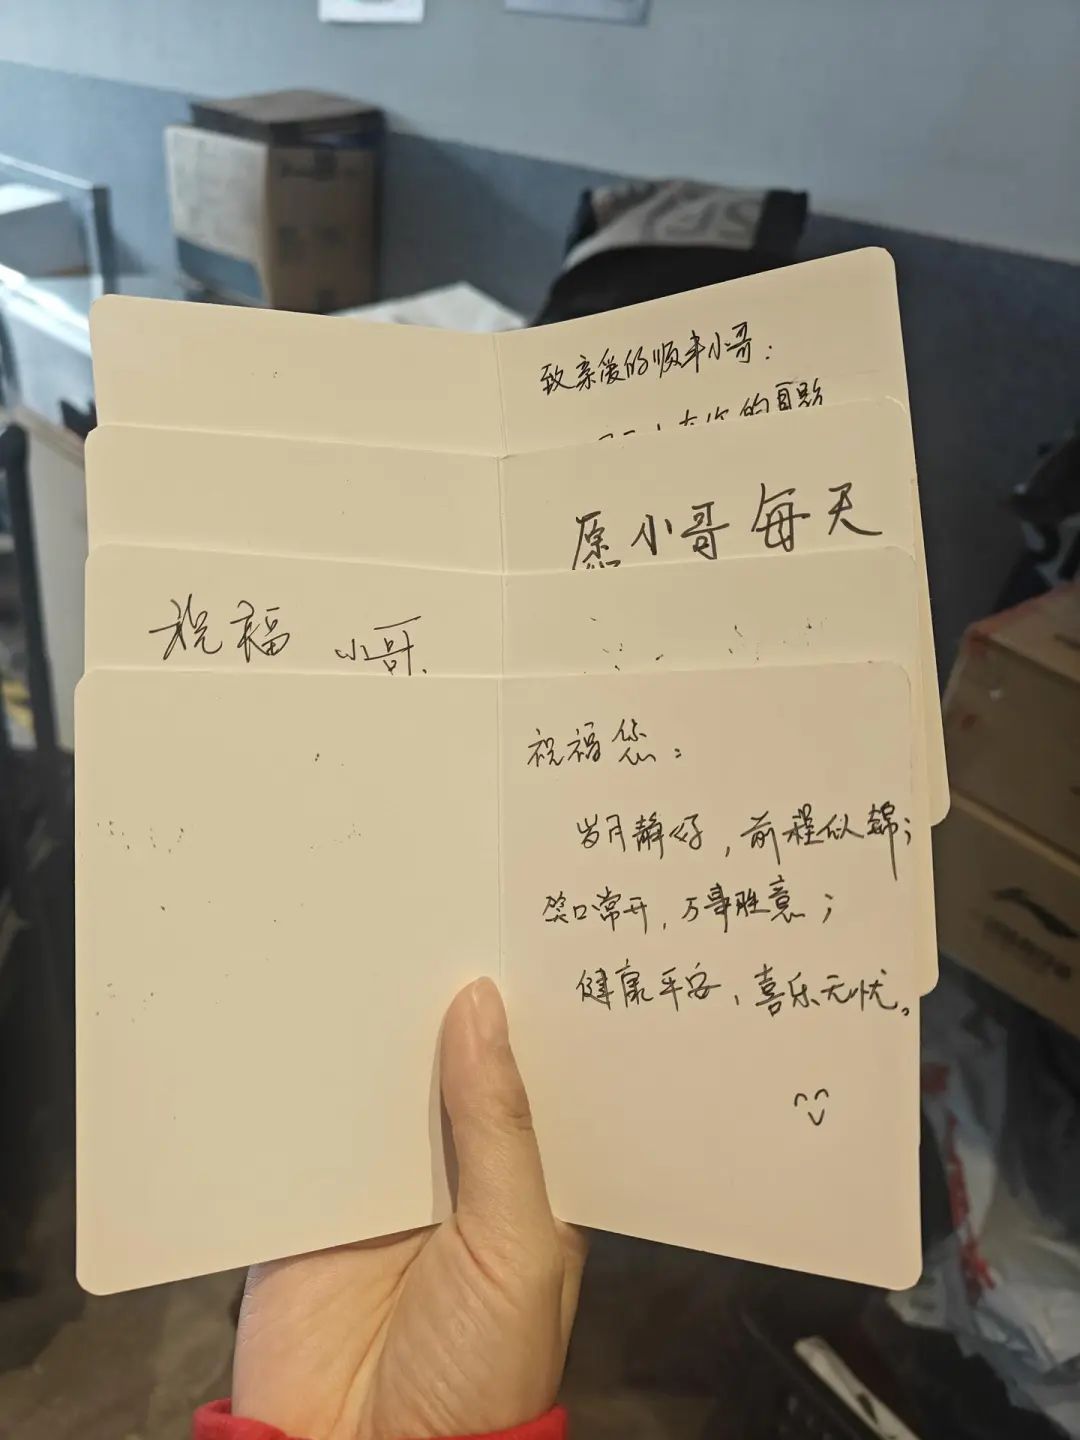 致亲爱的顺丰小哥：
的身影
愿小哥每天
祝福 小哥.
祝福您：
岁月静好，前程似锦；
笑口常开，万事胜意；
健康平安，喜乐无忧。